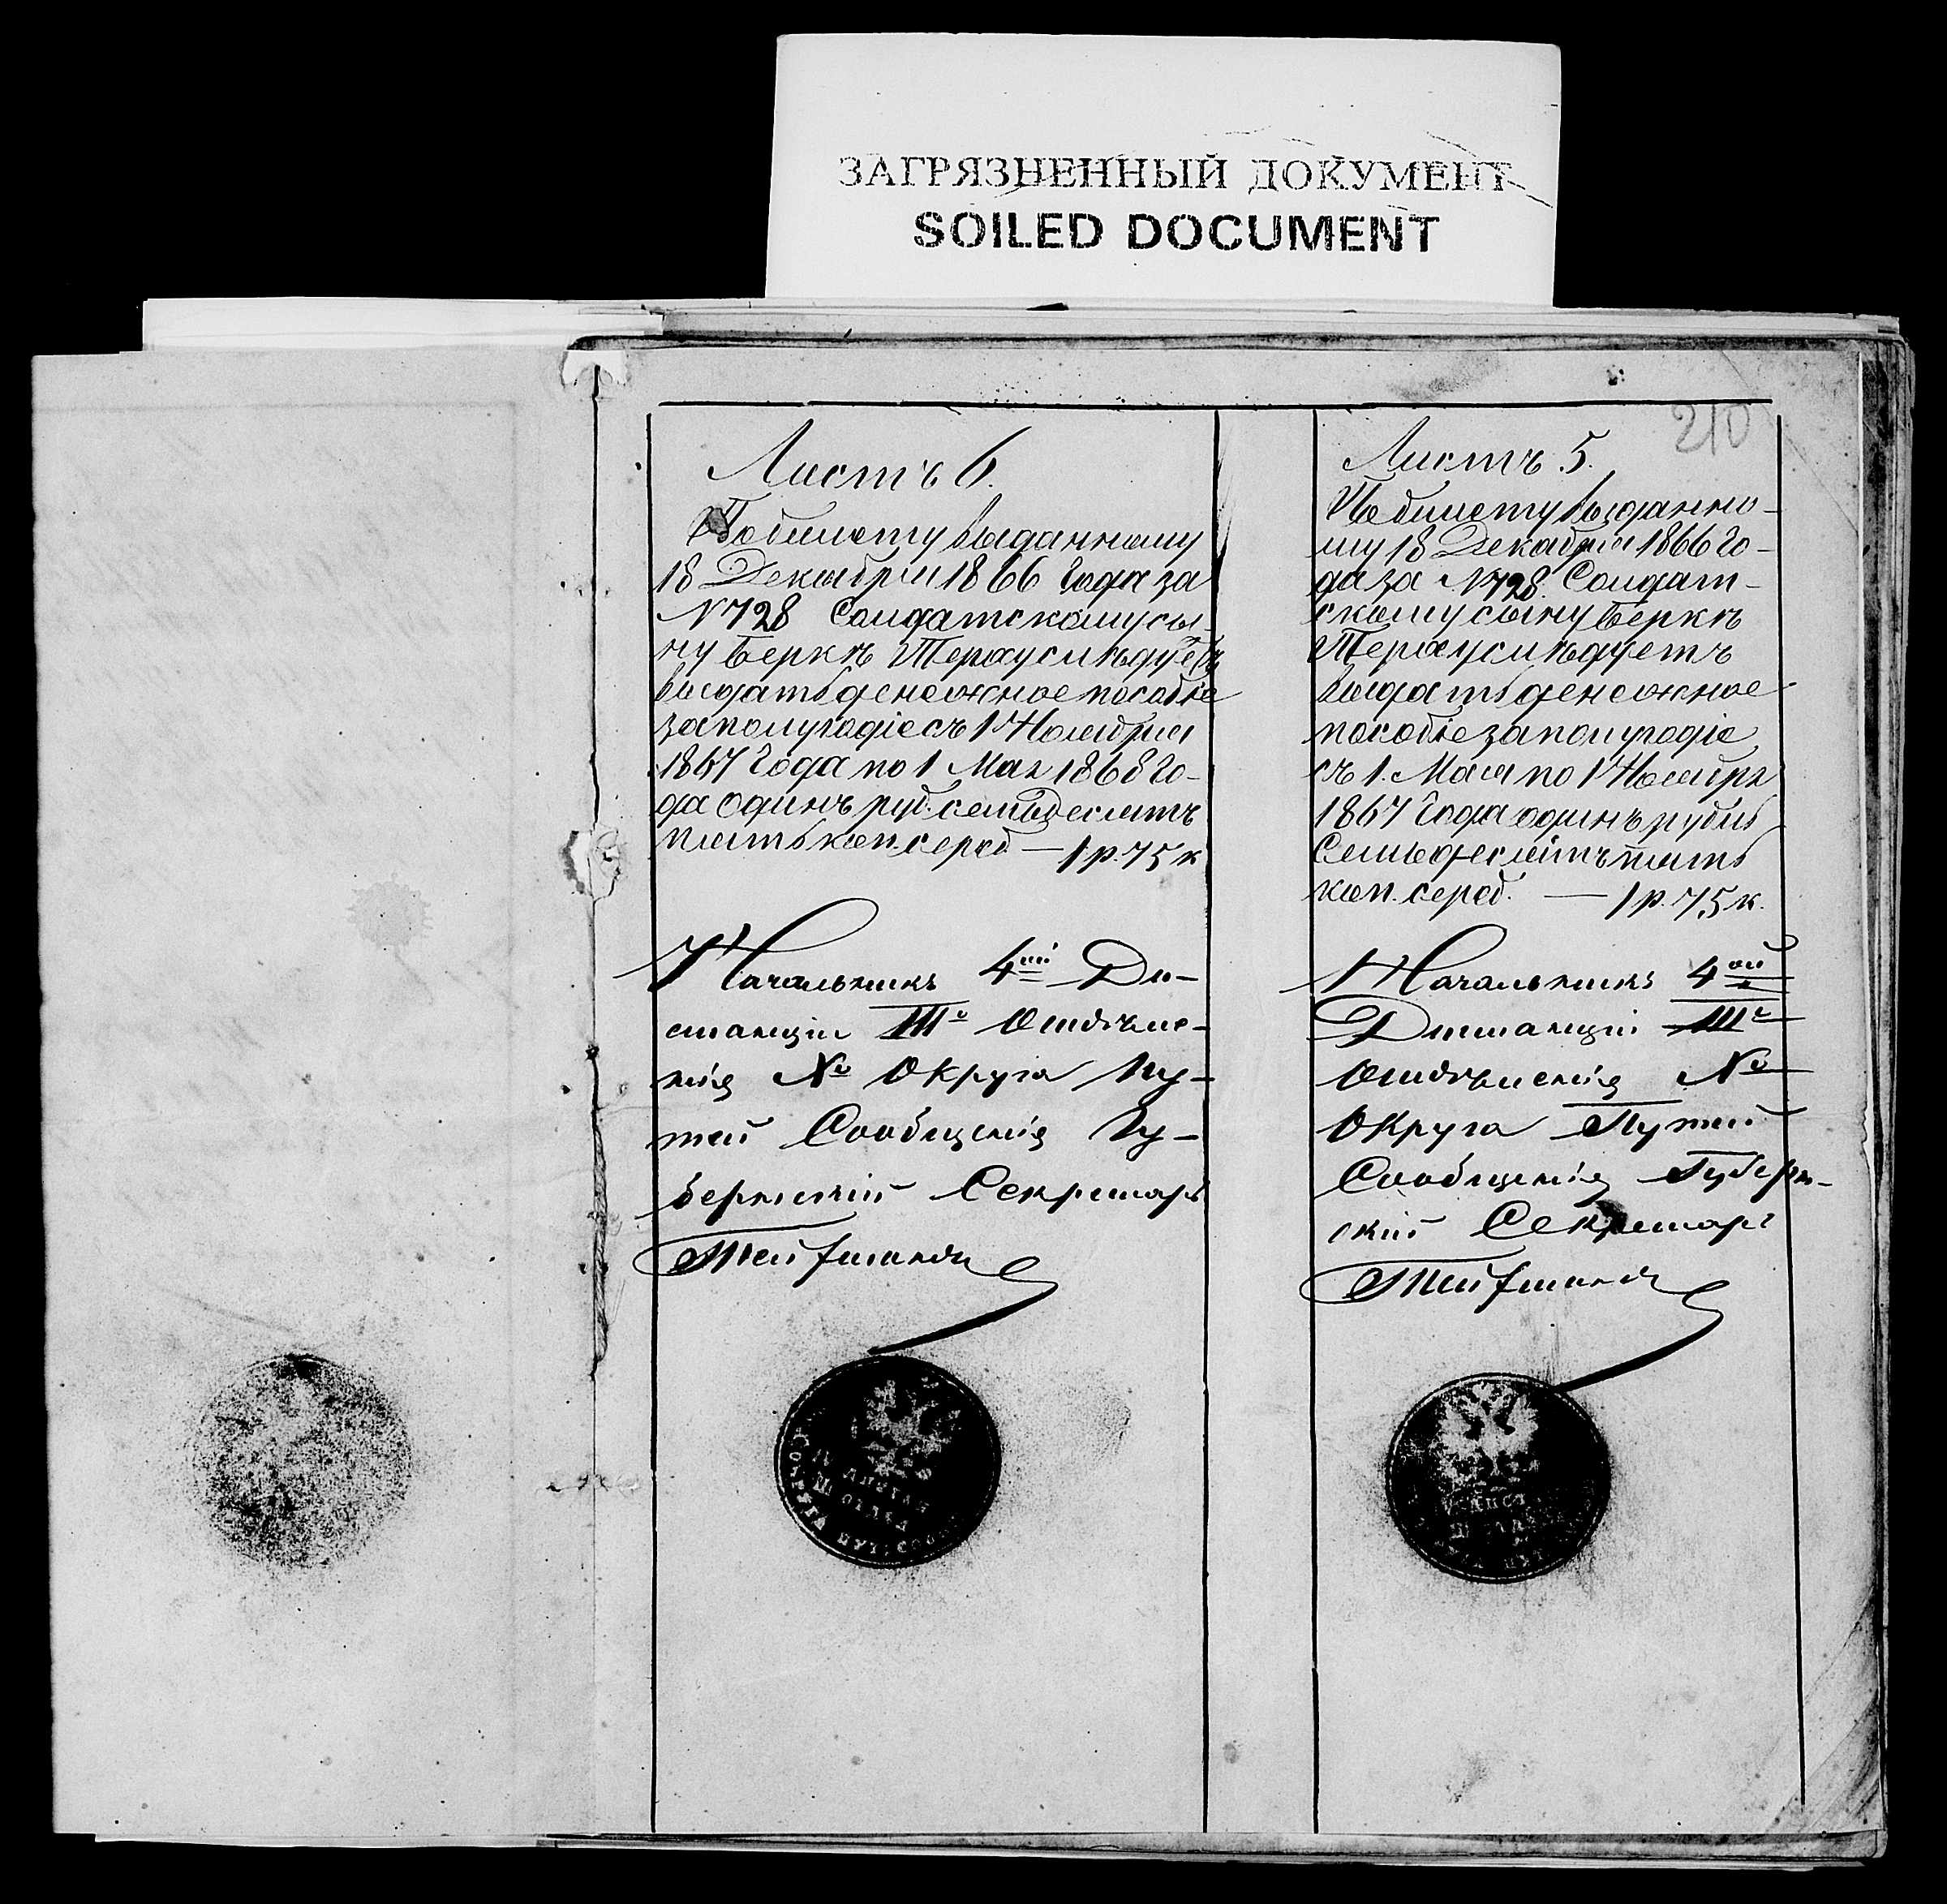 ЗАГРЯЗНЕННЫЙ ДОКУМЕНТ
SOILED DOCUMENT
210
Листъ 6.
По билету выданному
18 Декабря 1866 года за
№ 728 Солдатскому сы-
ну Беркѣ
выдать денежное пособіе
за полугодіе съ 1 Ноября
1867 года по 1 Мая 1868 го-
да одинъ руб. семьдесятъ
пять коп. сереб. — 1 р. 75 к
Начальникъ 4ой Ди-
станціи III о Отдѣле-
нія № Округа Пу-
тей Сообщенія Гу-
бернскій Секретарь
Листъ 5.
По билету выданно-
му 18 Декабря 1866 го-
да за № 728. Солдат-
скому сыну Беркѣ
выдать денежное
пособіе за полугодіе
съ 1. Мая по 1 Ноября
1867 года одинъ рубль
семьдесятъ пять
коп. сереб. — 1 р. 75 к.
Начальникъ 4ой
Дистанціи III о
Отдѣленія №
Округа Путей
Сообщенія Губерн-
скій Секретарь